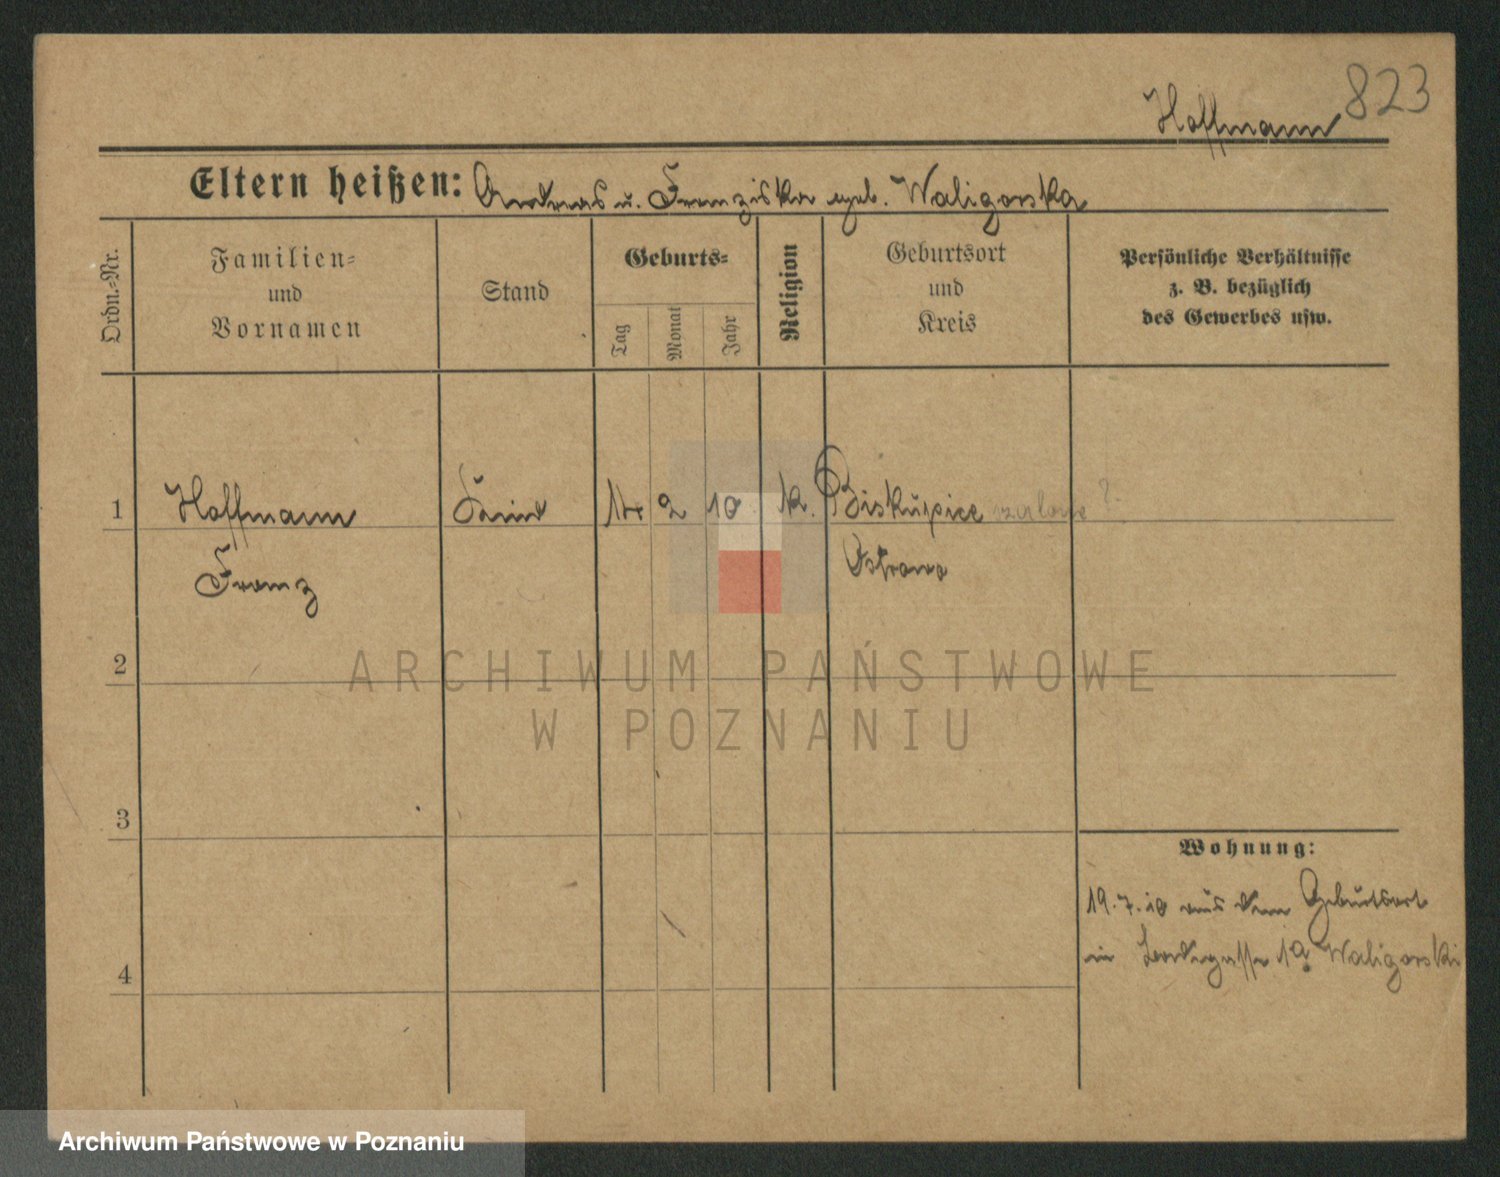 823
Hoffmann
Eltern heißen: Andreas u. Franziska geb. Waligorska
Ordn.-Nr.
Familien-
und
Vornamen
Stand
Geburts-
Tag
Monat
Jahr
Religion
Geburtsort
und
Kreis
Persönliche Verhältnisse
z. B. bezüglich
des Gewerbes usw.
1 Hoffmann 2 10 k. Biskupice
Franz Ostrowo
2
ARCHIWUM PAŃSTWOWE
W POZNANIU
3
Wohnung:
19.7.10 aus dem Geburtsort
in 1a Waligorski
4
Archiwum Państwowe w Poznaniu